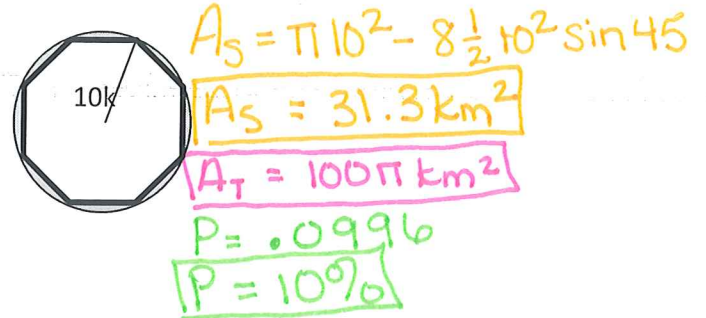 A_S = π10² - 8 ½ 10² sin 45
10k
A_S = 31.3 km²
A_T = 100π km²
P = .0996
P = 10%